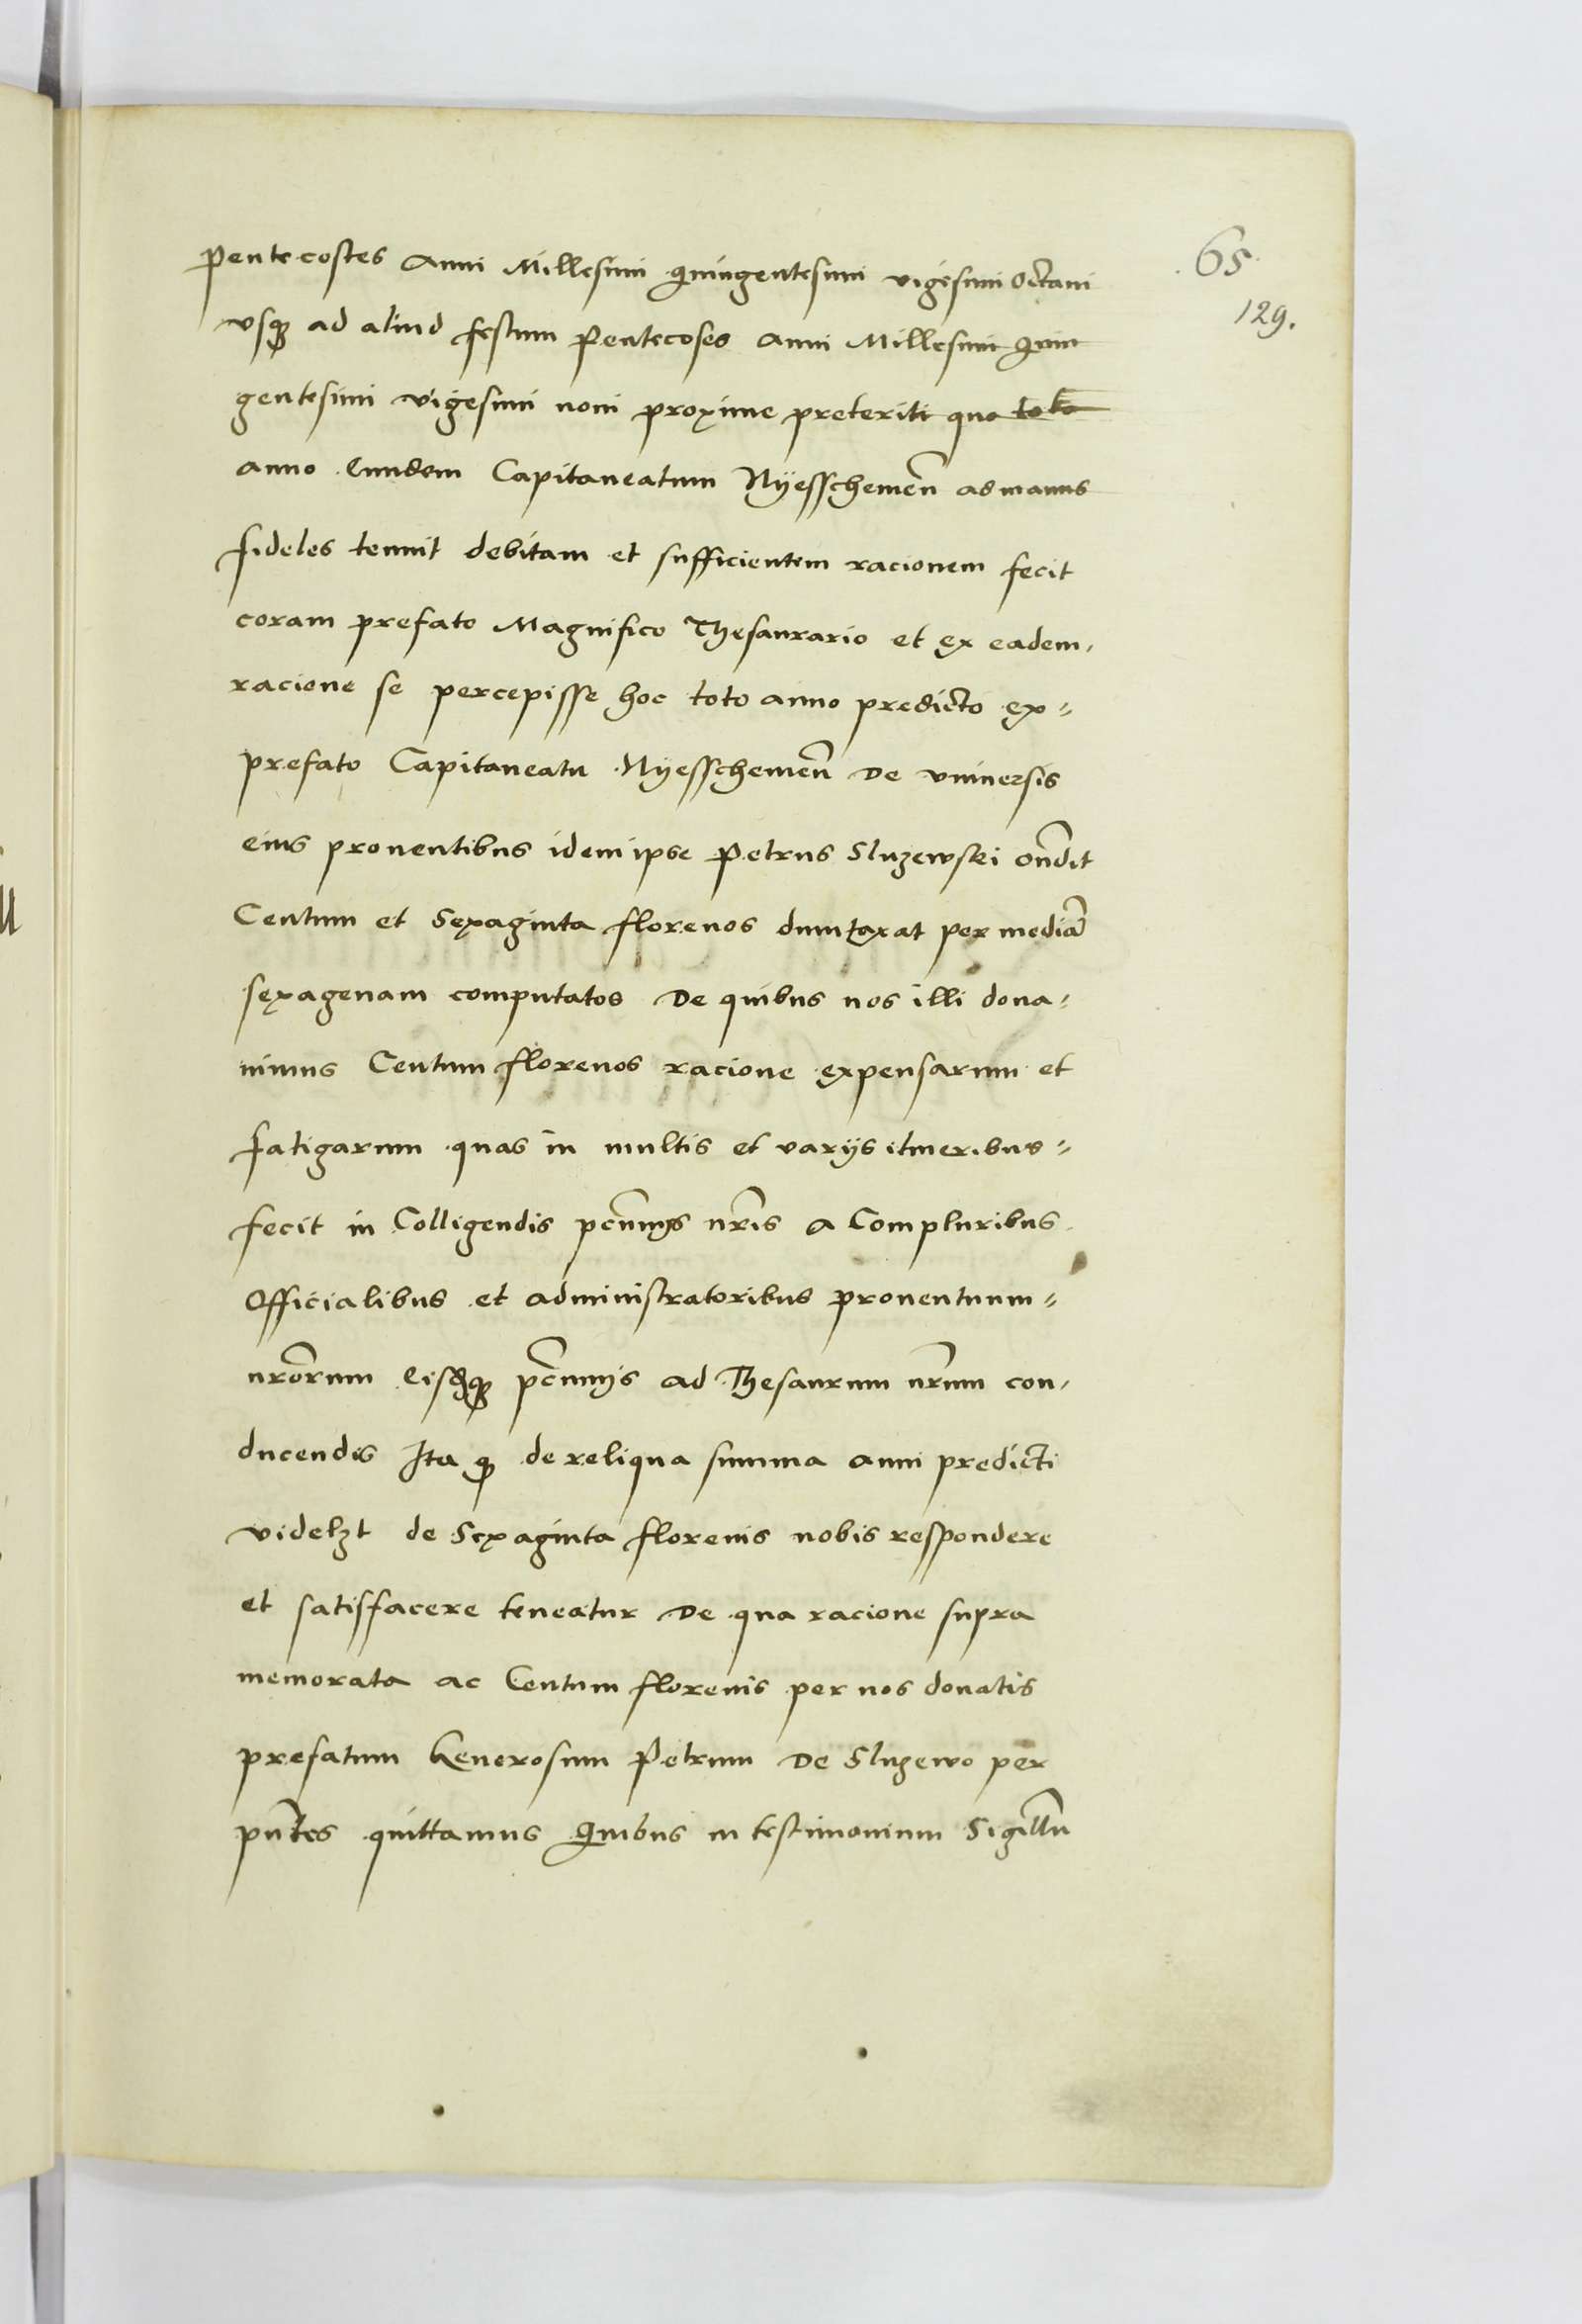 65
129.
Pentecostes Anni Millesimi Quingentesimi vigesimi Octaui
vsq3 ad aliud festum Pentecoses Anni Millesimi Quin
gentesimi vigesimi noni proxime preteriti quo toto
anno Eundem Capitaneatum Nyesschemen̄ ad manus
fideles tenuit debitam et sufficientem racionem fecit
coram prefato Magnifico Thesaurario et ex eadem,
racione se percepisse hoc toto anno predicto ex=
prefato Capitaneatu Nyesschemen̄ De vniuersis
eius prouentibus idem ipse Petrus Sluzewski on̄dit
Centum et Sexaginta florenos dumtaxat per mediā
sexagenam computatos De quibus nos illi dona=
uimus Centum florenos racione expensarum et
fatigarum quas in multis et varijs itineribus=
fecit in Colligendis pcūnijs nr̄is a Compluribus
Officialibus et administratoribus prouentuum=
nrōrum Eisdēq3 pcūnijs ad Thesaurum nr̄um con,
ducendis Ita q3 de reliqua summa anni predicti
videlzt de Sexaginta florenis nobis respondere
et satisfacere teneatur De qua racione supra
memorata ac Centum florenis per nos donatis
prefatum Generosum Petrum De Sluzewo per
pn̄tes quittamus Quibus in testimonium Sigillū